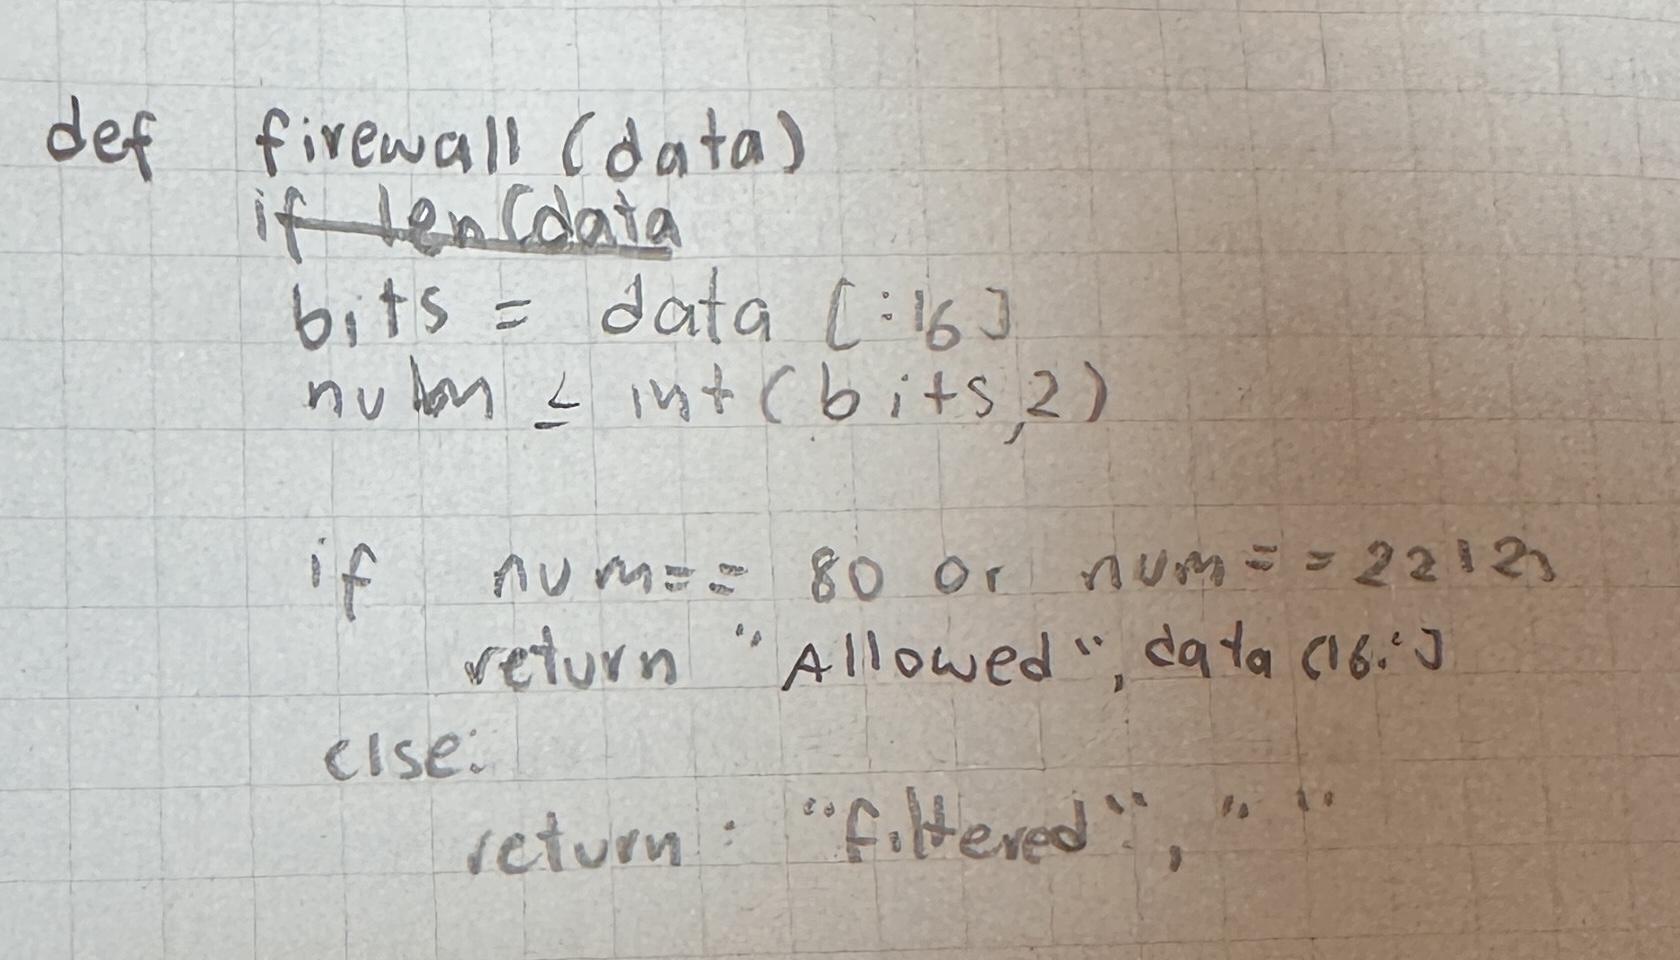 def firewall (data)
if len(data
bits = data [:16]
num = int(bits,2)
if num== 80 or num == 2212:
return "Allowed", data [16:]
else:
return: "filtered", " "